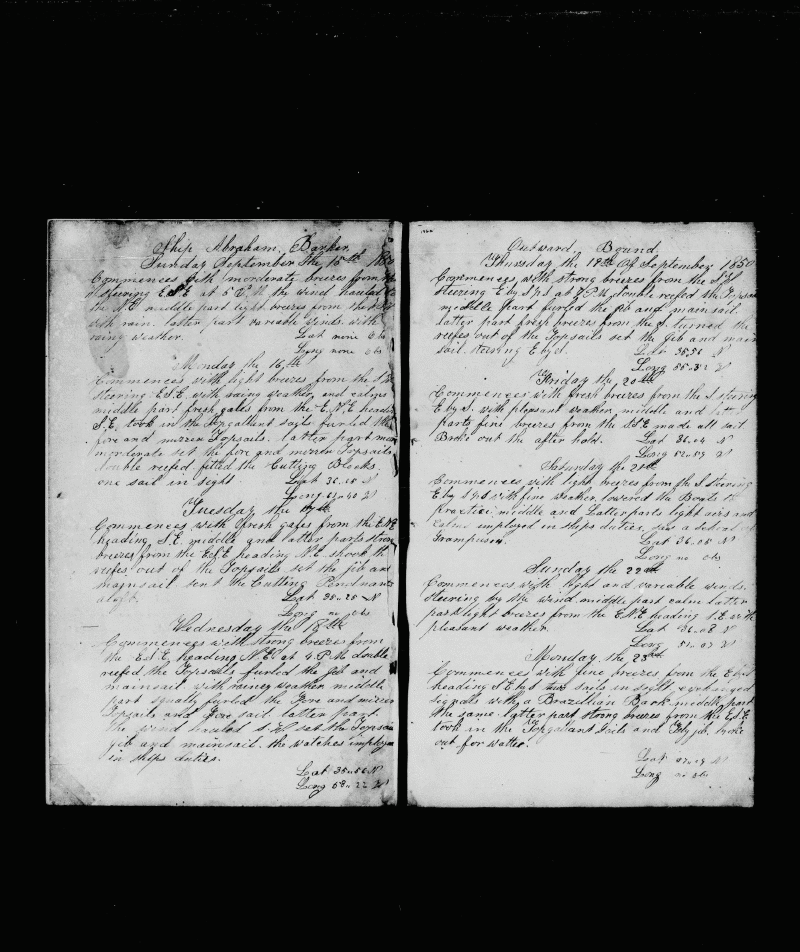 Ship Abraham Barker
Sunday September the 15th 1850
Commences with morderate breezes from the
steering ESE at 6 P.M. the wind hauled to
the N.E. middle part light breezes from the
with rain. latter part variable winds. with
rainy weather. Lat none obs
Long none obs
Monday the 16th
Commences with light breezes from the
sterring E.S.E. with rainy weather, and calms
middle part fresh gales from the E.N.E. heading
S.E. took in the Topgallant sails furled the
fore and mizzen Topsails. latter part more
morderate set the fore and mizzen Topsails
double reefed, fitted the Cutting Blocks
one sail in sight. Lat 36..15 N
Long 61..40 W
Tuesday the 17th
Commences with fresh gales from the ENE
heading S.E. middle and latter parts strong
breezes from the ESE heading N.E. shook the
reefs out of the Topsails set the jib and
mainsail sent the Cutting Pendants
aloft. Lat 35..25 N
Long no obs
Wednesday the 18th
Commences with strong breezes from
the E.S.E. heading N.E. at 4 P.M. double
reefed the Topsails furled the Jib and
mainsail with rainey weather middle
part squally furled the Fore and mizzen
Topsails and fore sail. latter part
the wind hauled S. set the Topsails
jib and mainsail. the watches imployed
in ships duties.
Lat 35..56 N
Long 58..22 W
Outward Bound
Thursday the 19th Of September 1850
Commences with strong breezes from the
steering E by S at 7 P.M. double reefed the Topsails
middle part furled the jib and mainsail.
latter part fresh breezes from the S. turned the
reefes out of the Topsails set the jib and main
sail. steering E by S. Lat 35,51 N
Long 55..32 W
Friday the 20th
Commences with fresh breezes from the S steering
E by S. with pleasant weather, middle and latter
parts fine breezes from the SSE made all sail
Broke out the after hold. Lat 36..04 N
Long 52..59 W
Saturday the 21st
Commences with light breezes from the S steering
E by S with fine weather, lowered the Boats to
practice. middle and Latter parts light airs and
calms employed in ships duties, saw a school of
Grampuses. Lat 36..05 N
Long no obs
Sunday the 22th
Commences with light and variable winds.
steering by the wind. middle part calm latter
part light breezes from the E.N.E heading S.E. with
pleasant weather. Lat 36..08 N
Long 51..07 W
Monday the 23th
Commences with fine breezes from the E by S
heading S E by S two sails in sight, exchanged
signals with a Brazillian Bark. middle part
the same. latter part strong breezes from the E.S.E.
took in the Topgallant sails and Fly jib, broke
out for watter.
Lat 37..19 N
Long no obs